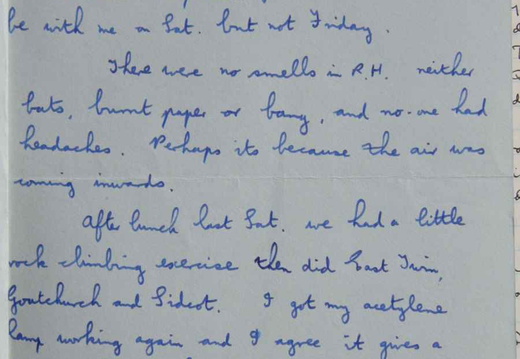 be with me on Sat. but not Friday.
There were no smells in R.H. neither
bats, burnt paper or bang, and no-one had
headaches. Perhaps its because the air was
coming inwards.
After lunch last Sat. we had a little
rock climbing exercise then did East Twin,
Goatchurch and Sidcot. I got my acetylene
lamp working again and I agree it gives a